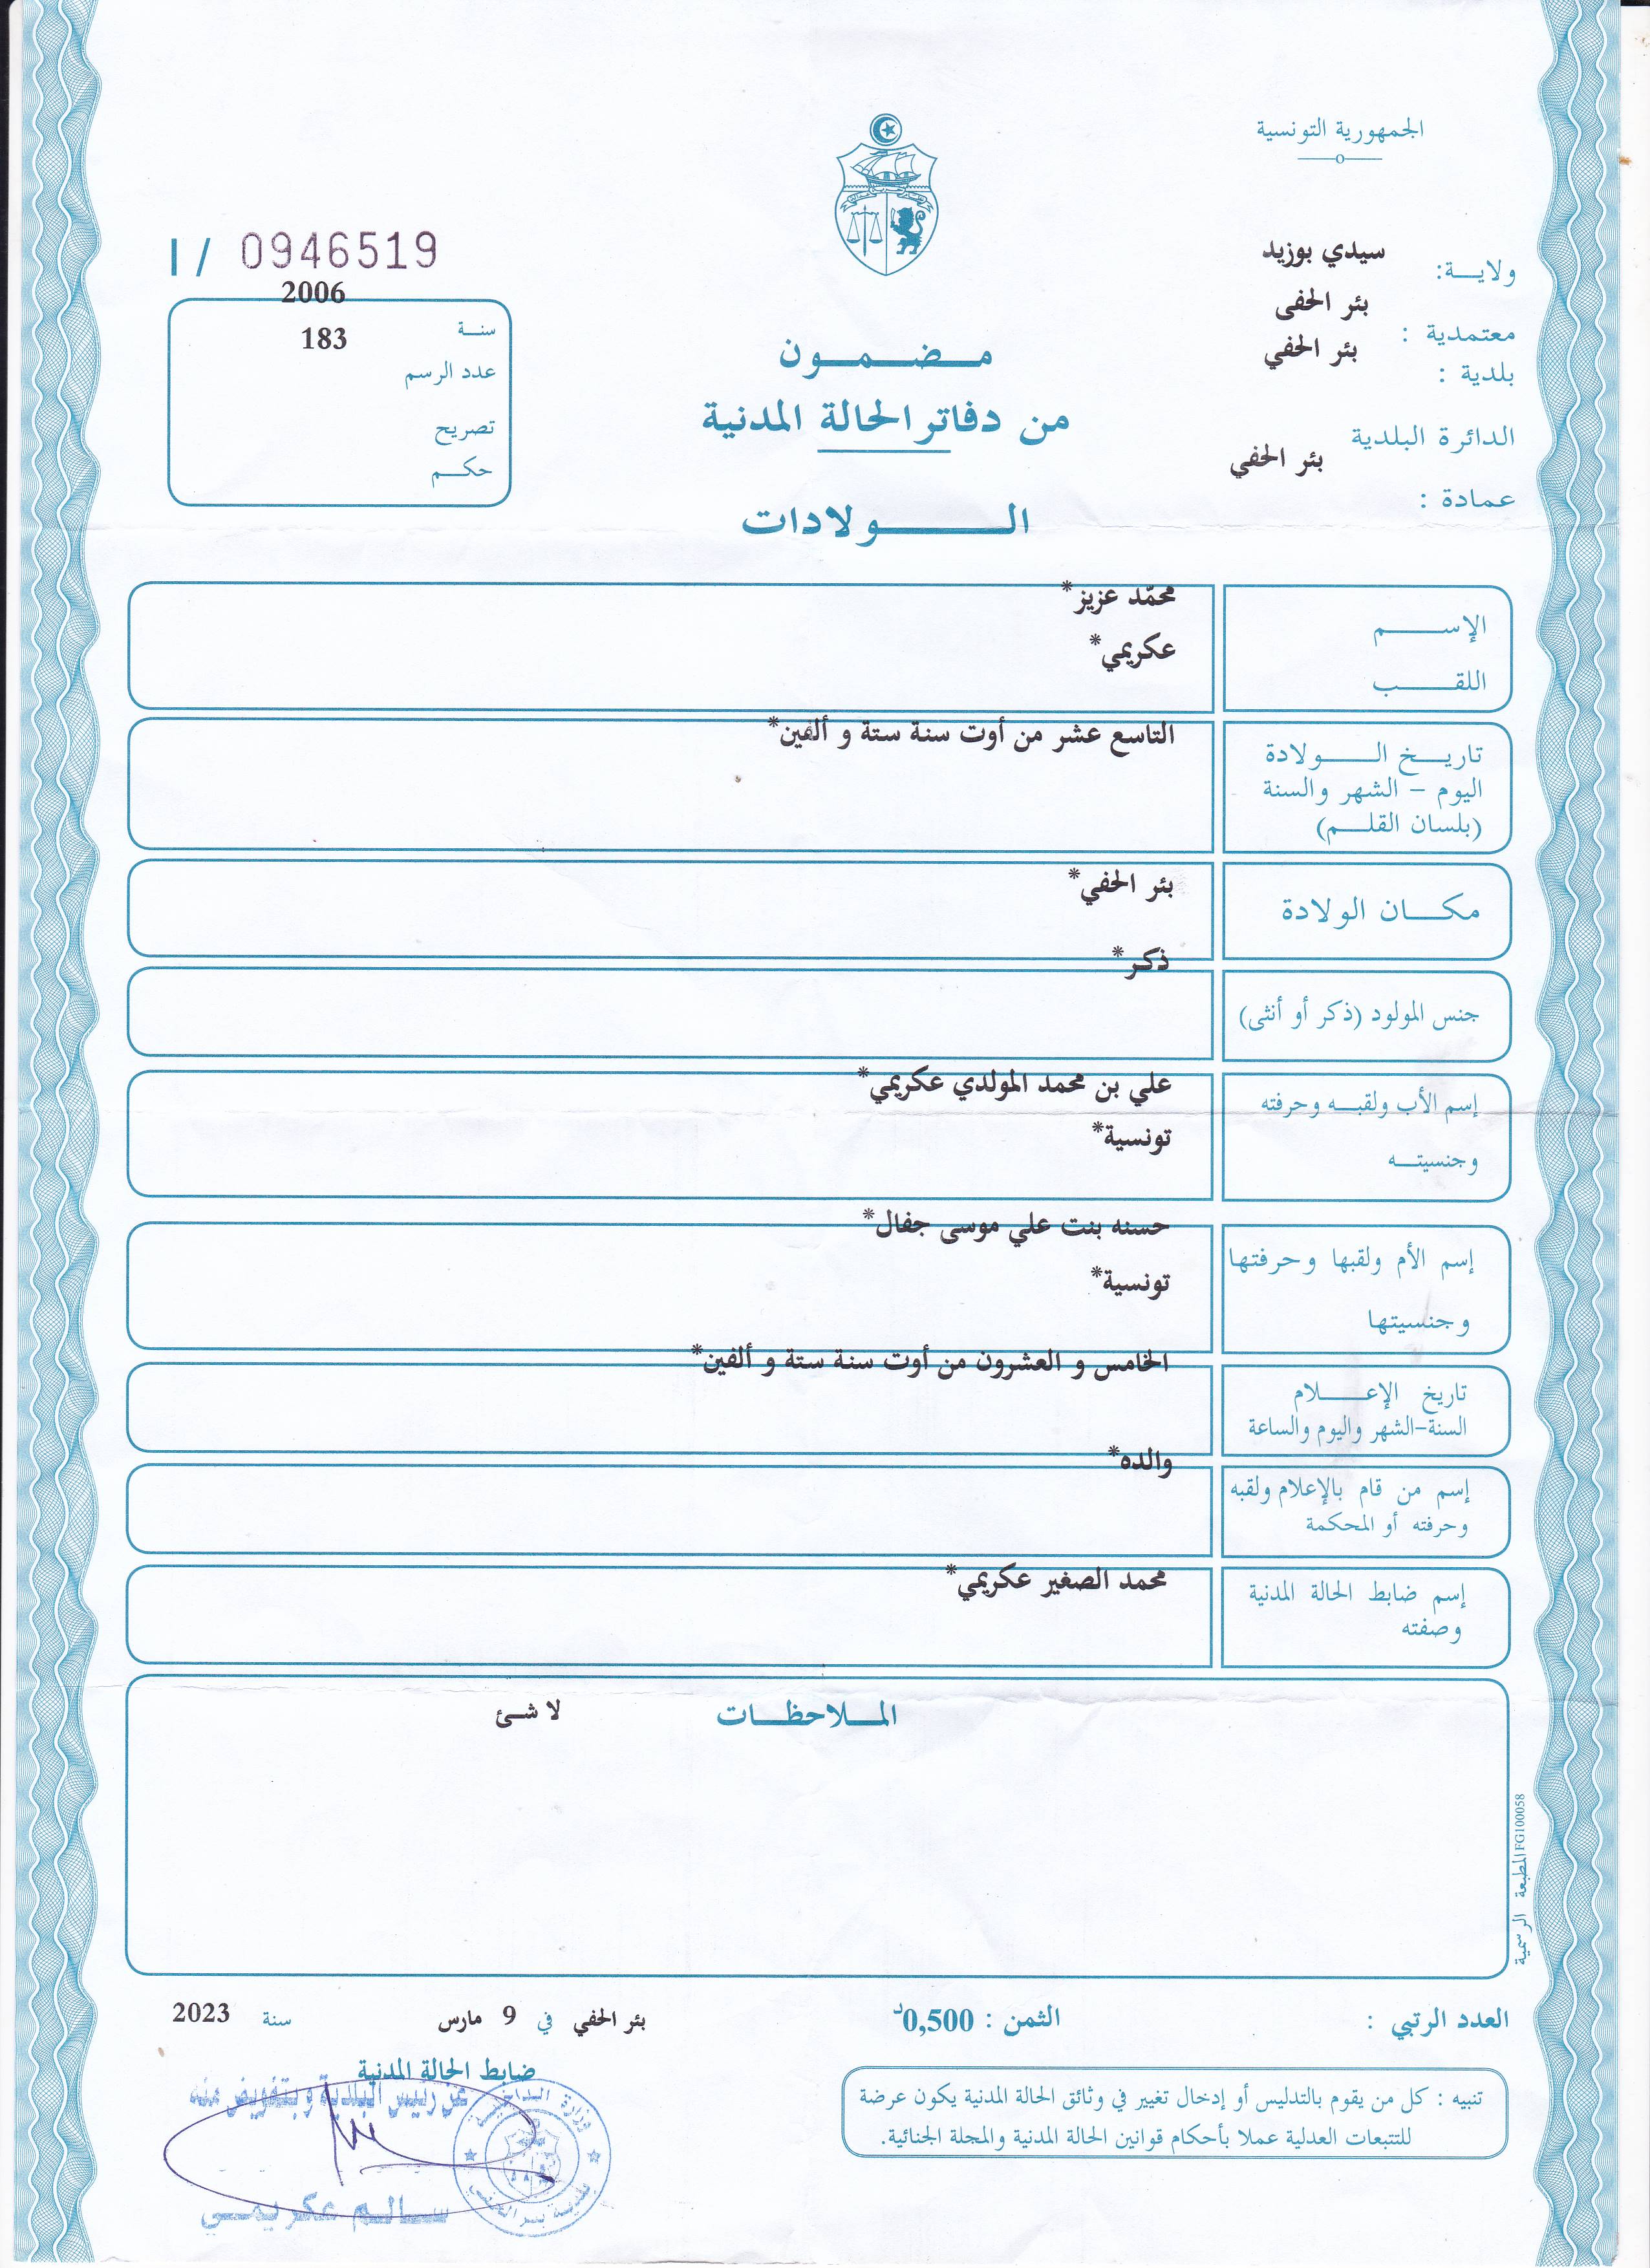 الجمهورية التونسية
ولاية: سيدي بوزيد
معتمدية : بئر الحفى
بلدية : بئر الحفي
الدائرة البلدية بئر الحفي
عمادة :
I / 0946519
سنة 2006
عدد الرسم 183
تصريح
حكم
مضمون
من دفاتر الحالة المدنية
الولادات
الإسم محمّد عزيز*
اللقب عكريمي*
تاريخ الولادة التاسع عشر من أوت سنة ستة و ألفين*
اليوم – الشهر والسنة
(بلسان القلم)
مكان الولادة بئر الحفي*
جنس المولود (ذكر أو أنثى) ذكر*
إسم الأب ولقبه وحرفته علي بن محمد المولدي عكريمي*
وجنسيته تونسية*
إسم الأم ولقبها وحرفتها حسنه بنت علي موسى جفال*
وجنسيتها تونسية*
تاريخ الإعلام الخامس و العشرون من أوت سنة ستة و ألفين*
السنة-الشهر واليوم والساعة
إسم من قام بالإعلام ولقبه والده*
وحرفته أو المحكمة
إسم ضابط الحالة المدنية محمد الصغير عكريمي*
وصفته
الملاحظات لا شئ
المطبعة الرسمية FG100058
العدد الرتبي :
الثمن : 0,500د
بئر الحفي في 9 مارس سنة 2023
ضابط الحالة المدنية
عن رئيس البلدية وبتفويض منه
سالم عكريمي
وزارة الداخلية
بلدية بئر الحفي
تنبيه : كل من يقوم بالتدليس أو إدخال تغيير في وثائق الحالة المدنية يكون عرضة
للتتبعات العدلية عملا بأحكام قوانين الحالة المدنية والمجلة الجنائية.